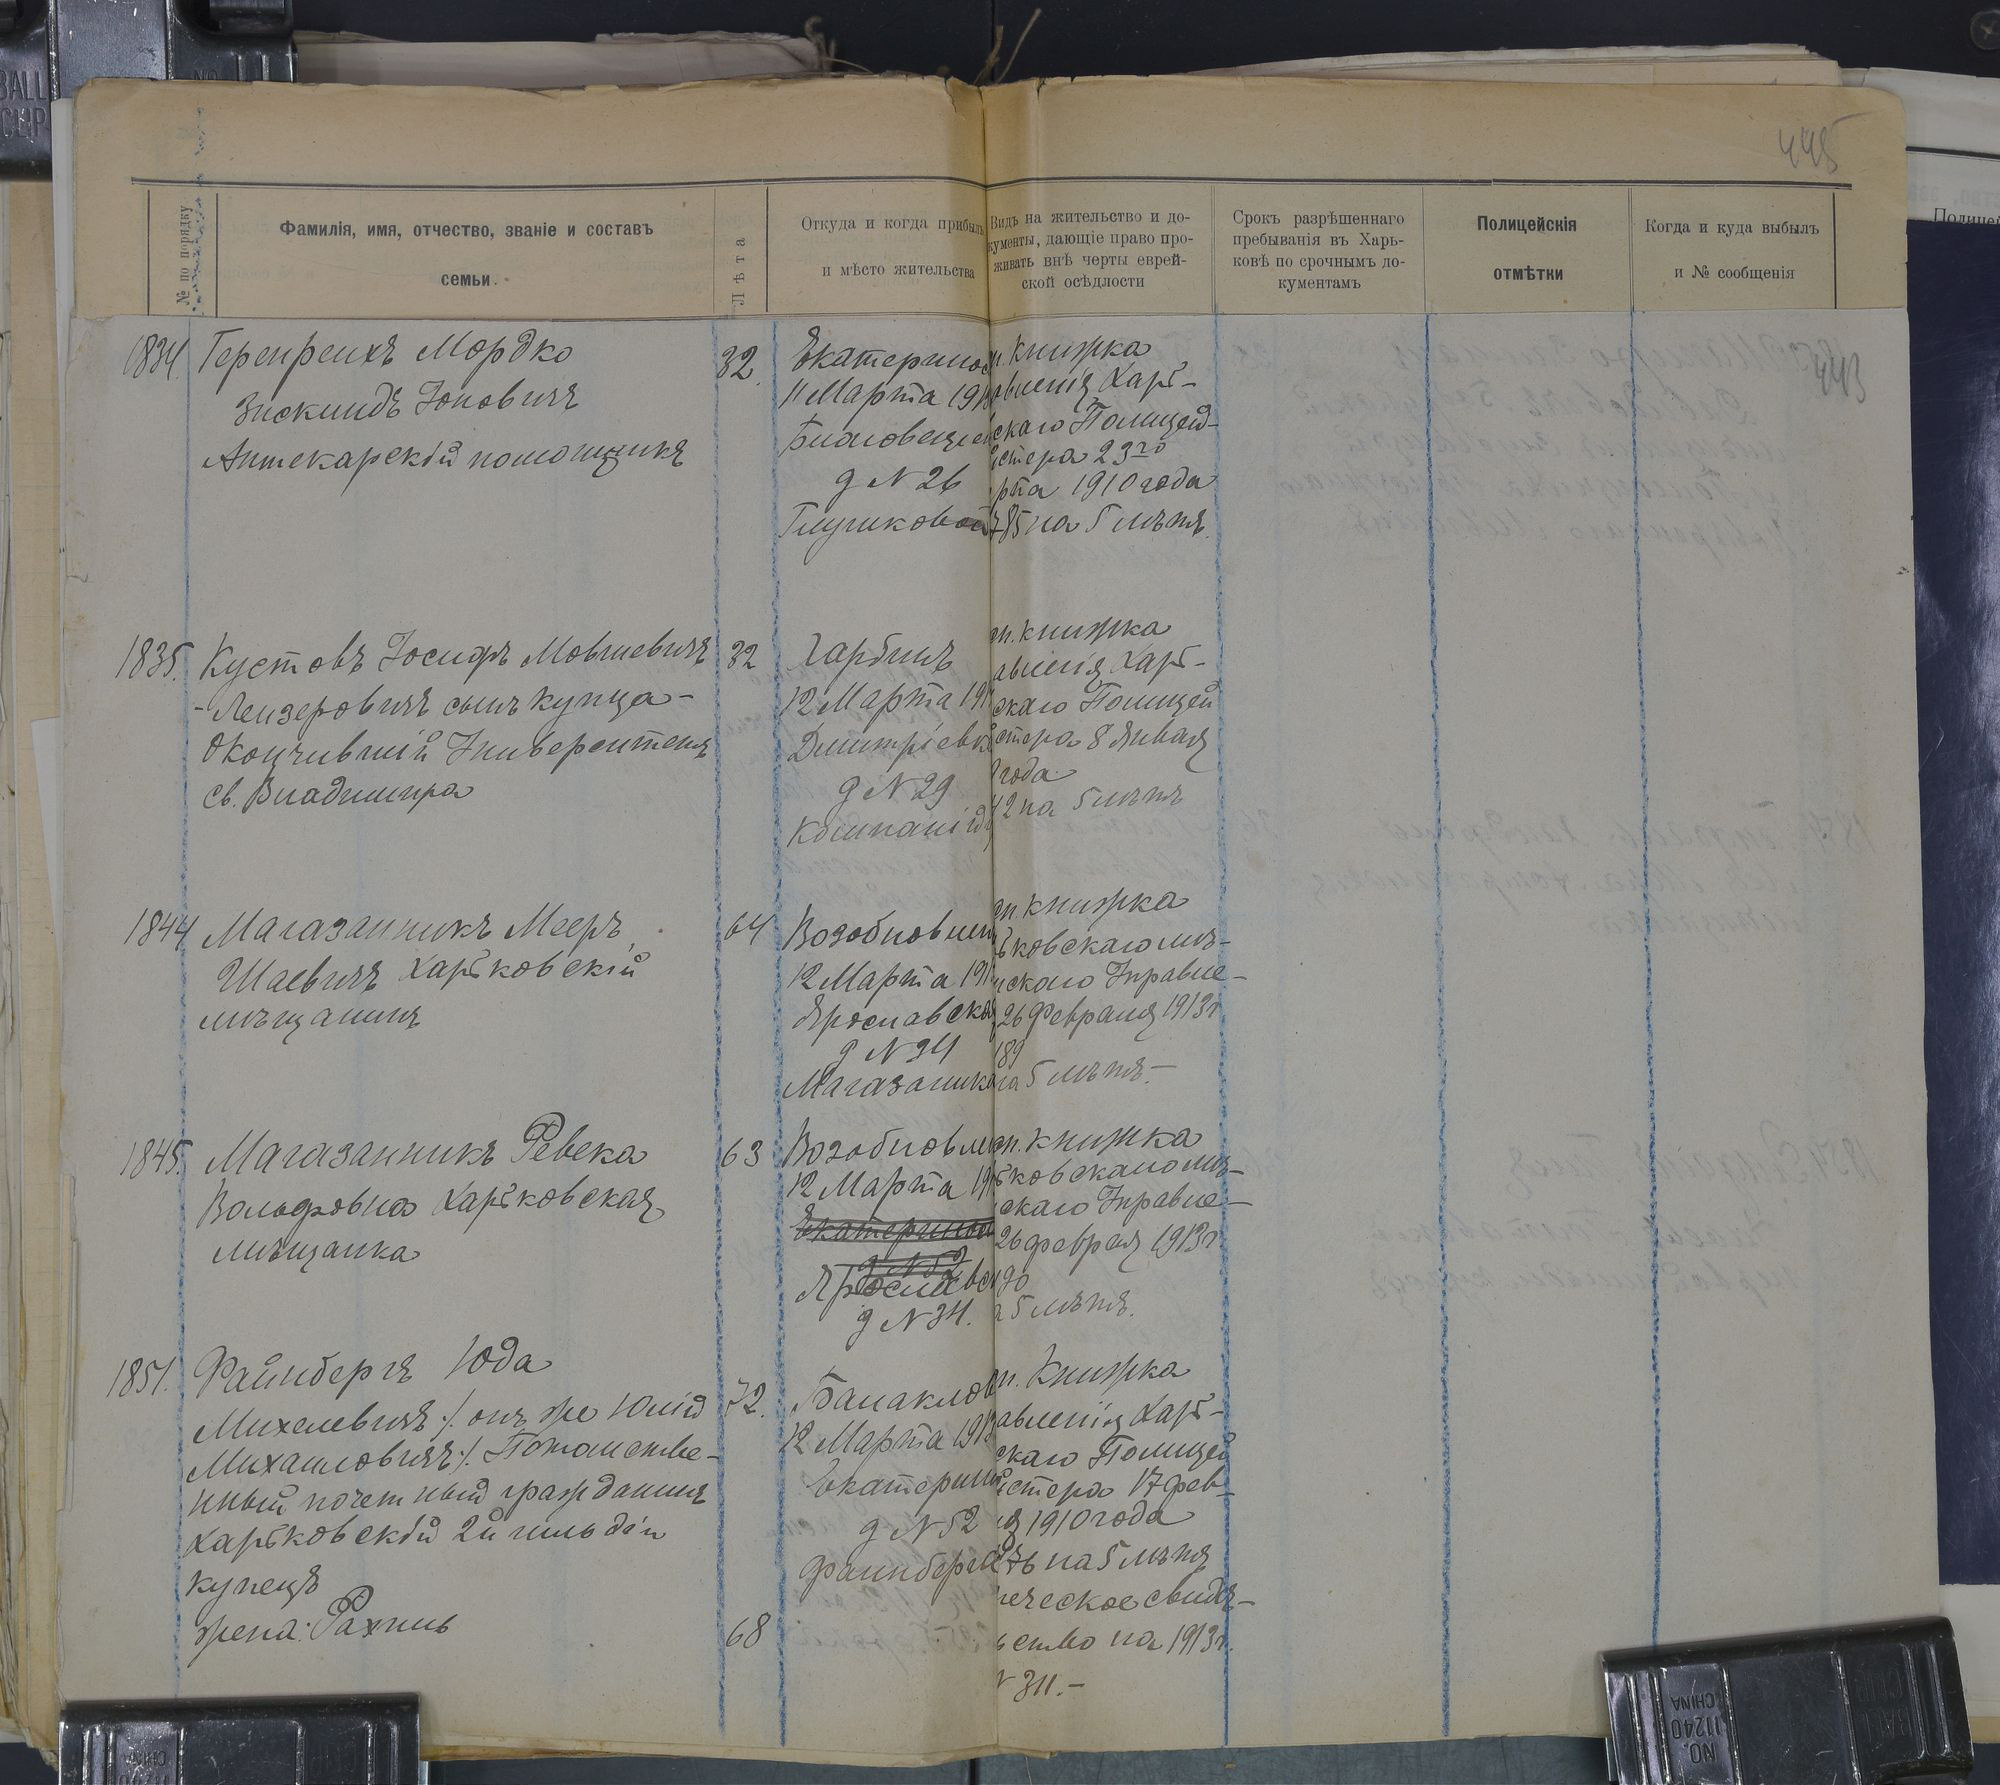 445
№ по порядку
Фамилія, имя, отчество, званіе и составъ
семьи.
Лѣта
Откуда и когда прибылъ
и мѣсто жительства
Видъ на жительство и до-
кументы, дающіе право про-
живать внѣ черты еврей-
ской осѣдлости
Срокъ разрѣшеннаго
пребыванія въ Харь-
ковѣ по срочнымъ до-
кументамъ
Полицейскія
отмѣтки
Когда и куда выбылъ
и № сообщенія
1834. Геренрейхъ Мордко
Зискиндъ Іоновичъ
Аптекарскій помощникъ
32.
Екатеринос
11 Марта 191
Благовещен
д N 26
Глушковой
п. книжка
овленія Харь-
скаго Полицей-
йстера 23го
рта 1910 года
785 на 5 лѣтъ.
1835. Кустовъ Іосифъ Мовшевичъ
-Лейзеровичъ сынъ купца-
Окончившій Университетъ
св. Владимира
32
Харбинъ
12 Марта 191
Дмитріевск
д N 29
Компанійц
п. книжка
авленія Харь-
скаго Полицей
стера 8 Января
года
42 на 5 лѣтъ
1844 Магазанникъ Мееръ
Шаевичъ Харьковскій
мѣщанинъ
64
Возобновлен
12 Марта 191
Ярославская
д N 34
Магазаник
п. книжка
ьковскаго мѣ-
нскаго Управле-
26 Февраля 1913 г
189
на 5 лѣтъ.-
1845. Магазанникъ Ревека
Вольфовна Харьковская
мѣщанка
63
Возобновле
12 Марта 191
Екатеринос
д N 52
Ярославск
д N 34.
п. книжка
ьковскаго мѣ-
скаго Управле-
26 февраля 1913 г
90
а 5 лѣтъ.
1851. Файнбергъ Юда
Михелевичъ /. онъ же Юлій
Михаиловичъ /. Потомстве-
нный почетный гражданинъ
Харьковскій 2й гильдіи
купецъ
жена: Рахиль
72.
68
Балаклов
12 Марта 1913
Екатерино
д N 52
Файнберга
п. Книжка
авленія Харь-
скаго Полицей
йстера 17 фев-
ля 1910 года
76 на 5 лѣтъ
печеское свидѣ-
ьство на 1913 г.
N 311.-
443